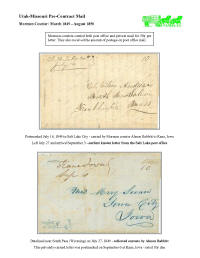 Utah-Missouri Pre-Contract Mail
Mormon Courier: March 1849 - August 1850
Mormon couriers carried both post office and private mail for 10¢ per
letter. They also received the amount of postage on post office mail.
10
North
Mass
Postmarked July 14, 1849 in Salt Lake City - carried by Mormon courier Almon Babbitt to Kane, Iowa
Left July 27 and arrived September 3 - earliest known letter from the Salt Lake post office
Kane Iowa
Sep 4
10
Miss Mary
Iowa City
Iowa
Datelined near South Pass (Wyoming) on July 27, 1849 - collected enroute by Almon Babbitt
This privately-carried letter was postmarked on September 4 at Kane, Iowa - rated 10¢ due